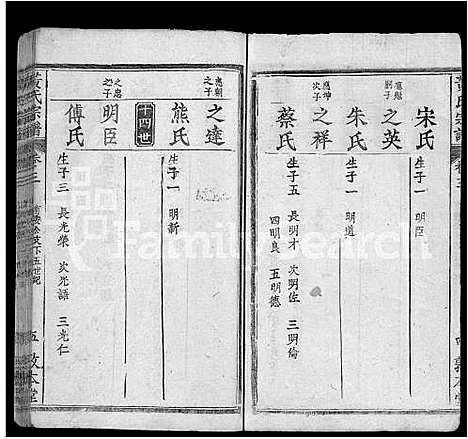 黃氏宗譜
卷三
四
敦本堂
宋氏
生子一 明臣
應魁
之英
朱氏
生子一 明道
應坤
次子
之祥
蔡氏
生子五 長明才 次明佐 三明倫
四明良 五明德
應朝
之子
之達
熊氏
生子一 明新
十四世
之忠
之子
明臣
傅氏
生子三 長光榮 次光語 三光仁
黃氏宗譜
卷三
五
敦本堂
FamilySearch